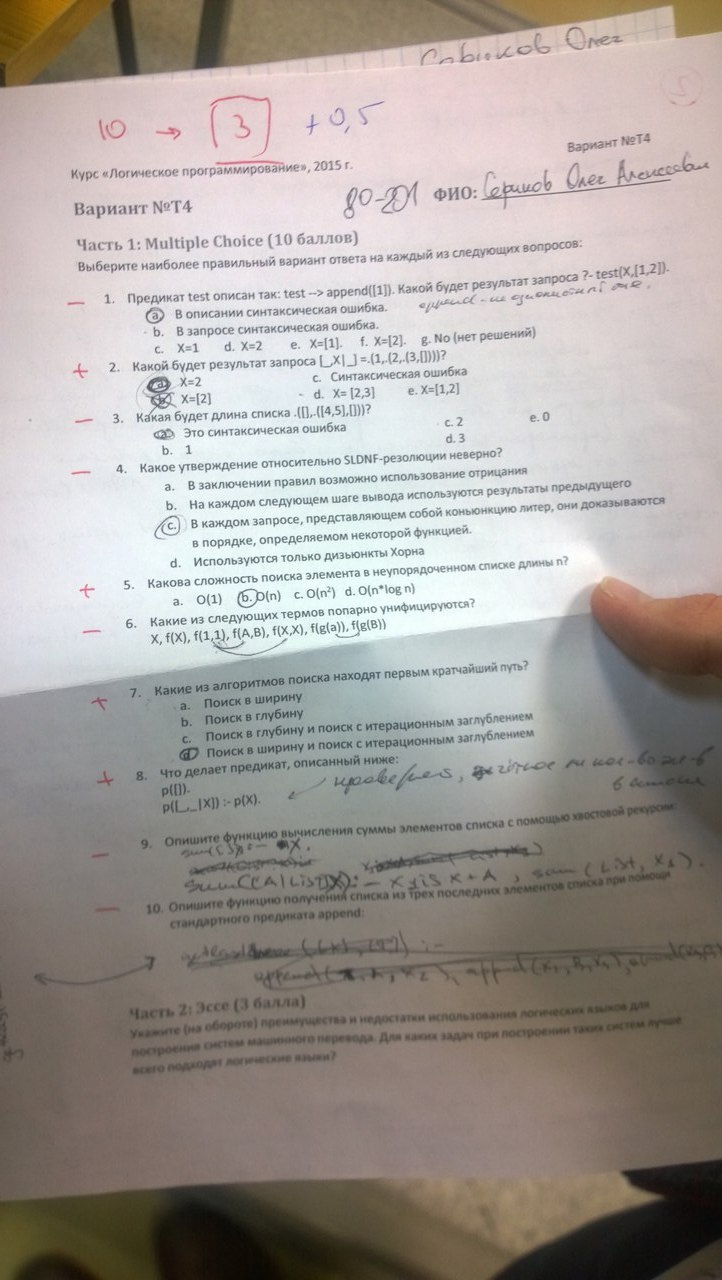 Олег
10 → 3 + 0,5
Вариант №Т4
Курс «Логическое программирование», 2015 г.
Вариант №Т4
80-201 ФИО: Олег Алексеевич
Часть 1: Multiple Choice (10 баллов)
Выберите наиболее правильный вариант ответа на каждый из следующих вопросов:
— 1. Предикат test описан так: test --> append([1]). Какой будет результат запроса ?- test(X,[1,2]).
a. В описании синтаксическая ошибка. append - не
b. В запросе синтаксическая ошибка.
c. X=1 d. X=2 e. X=[1]. f. X=[2]. g. No (нет решений)
+ 2. Какой будет результат запроса [_,X|_] =.(1,.(2,.(3,[])))?
a. X=2 c. Синтаксическая ошибка
b. X=[2] d. X= [2,3] e. X=[1,2]
— 3. Какая будет длина списка .([],.([4,5],[]))?
a. Это синтаксическая ошибка c. 2 e. 0
b. 1 d. 3
— 4. Какое утверждение относительно SLDNF-резолюции неверно?
a. В заключении правил возможно использование отрицания
b. На каждом следующем шаге вывода используются результаты предыдущего
c. В каждом запросе, представляющем собой конъюнкцию литер, они доказываются
в порядке, определяемом некоторой функцией.
d. Используются только дизъюнкты Хорна
+ 5. Какова сложность поиска элемента в неупорядоченном списке длины n?
a. O(1) b. O(n) c. O(n²) d. O(n*log n)
— 6. Какие из следующих термов попарно унифицируются?
X, f(X), f(1,1), f(A,B), f(X,X), f(g(a)), f(g(B))
+ 7. Какие из алгоритмов поиска находят первым кратчайший путь?
a. Поиск в ширину
b. Поиск в глубину
c. Поиск в глубину и поиск с итерационным заглублением
d. Поиск в ширину и поиск с итерационным заглублением
+ 8. Что делает предикат, описанный ниже:
p([]).
p([_,_|X]) :- p(X).
проверяет, четное ли кол-во
— 9. Опишите функцию вычисления суммы элементов списка с помощью хвостовой рекурсии:
— 10. Опишите функцию получения списка из трех последних элементов списка при помощи
стандартного предиката append:
Часть 2: Эссе (3 балла)
Укажите (на обороте) преимущества и недостатки использования логических языков для
построения систем машинного перевода. Для каких задач при построении таких систем лучше
всего подходят логические языки?